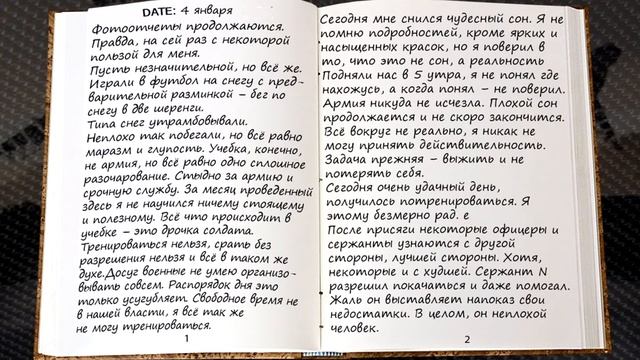 DATE: 4 января
Фотоотчеты продолжаются.
Правда, на сей раз с некоторой
пользой для меня.
Пусть незначительной, но всё же.
Играли в футбол на снегу с пред-
варительной разминкой – бег по
снегу в две шеренги.
Типа снег утрамбовывали.
Неплохо так побегали, но всё равно
маразм и глупость. Учебка, конечно,
не армия, но всё равно одно сплошное
разочарование. Стыдно за армию и
срочную службу. За месяц проведенный
здесь я не научился ничему стоящему
и полезному. Всё что происходит в
учебке – это дрочка солдата.
Тренироваться нельзя, срать без
разрешения нельзя и всё в таком же
духе.Досуг военные не умею организо-
вывать совсем. Распорядок дня это
только усугубляет. Свободное время не
в нашей власти, я всё так же
не могу тренироваться.
1
Сегодня мне снился чудесный сон. Я не
помню подробностей, кроме ярких и
насыщенных красок, но я поверил в
то, что это не сон, а реальность
Подняли нас в 5 утра, я не понял где
нахожусь, а когда понял – не поверил.
Армия никуда не исчезла. Плохой сон
продолжается и не скоро закончится.
Всё вокруг не реально, я никак не
могу принять действительность.
Задача прежняя – выжить и не
потерять себя.
Сегодня очень удачный день,
получилось потренироваться. Я
этому безмерно рад. е
После присяги некоторые офицеры и
сержанты узнаются с другой
стороны, лучшей стороны. Хотя,
некоторые и с худшей. Сержант N
разрешил покачаться и даже помогал.
Жаль он выставляет напоказ свои
недостатки. В целом, он неплохой
человек.
2